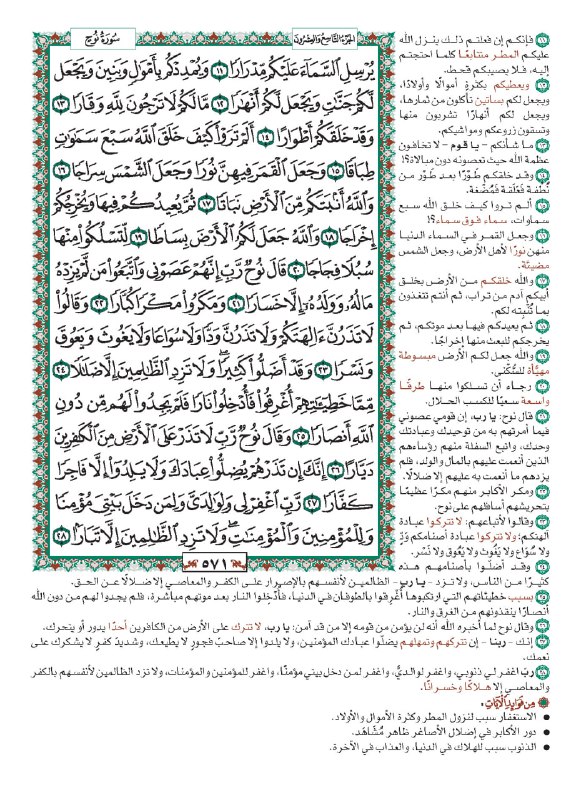 سُورَةُ نُوحٍ
الجُزْءُ التَّاسِعُ وَالعِشْرُونَ
يُرْسِلِ ٱلسَّمَآءَ عَلَيْكُم مِّدْرَارٗا ١١ وَيُمْدِدْكُم بِأَمْوَٰلٖ وَبَنِينَ وَيَجْعَل
لَّكُمْ جَنَّٰتٖ وَيَجْعَل لَّكُمْ أَنْهَٰرٗا ١٢ مَّا لَكُمْ لَا تَرْجُونَ لِلَّهِ وَقَارٗا ١٣
وَقَدْ خَلَقَكُمْ أَطْوَارًا ١٤ أَلَمْ تَرَوْاْ كَيْفَ خَلَقَ ٱللَّهُ سَبْعَ سَمَٰوَٰتٖ
طِبَاقٗا ١٥ وَجَعَلَ ٱلْقَمَرَ فِيهِنَّ نُورٗا وَجَعَلَ ٱلشَّمْسَ سِرَاجٗا ١٦
وَٱللَّهُ أَنۢبَتَكُم مِّنَ ٱلْأَرْضِ نَبَاتٗا ١٧ ثُمَّ يُعِيدُكُمْ فِيهَا وَيُخْرِجُكُمْ
إِخْرَاجٗا ١٨ وَٱللَّهُ جَعَلَ لَكُمُ ٱلْأَرْضَ بِسَاطٗا ١٩ لِّتَسْلُكُواْ مِنْهَا
سُبُلٗا فِجَاجٗا ٢٠ قَالَ نُوحٞ رَّبِّ إِنَّهُمْ عَصَوْنِي وَٱتَّبَعُواْ مَن لَّمْ يَزِدْهُ
مَالُهُۥ وَوَلَدُهُۥٓ إِلَّا خَسَارٗا ٢١ وَمَكَرُواْ مَكْرٗا كُبَّارٗا ٢٢ وَقَالُواْ
لَا تَذَرُنَّ ءَالِهَتَكُمْ وَلَا تَذَرُنَّ وَدّٗا وَلَا سُوَاعٗا وَلَا يَغُوثَ وَيَعُوقَ
وَنَسْرٗا ٢٣ وَقَدْ أَضَلُّواْ كَثِيرٗاۖ وَلَا تَزِدِ ٱلظَّٰلِمِينَ إِلَّا ضَلَٰلٗا ٢٤
مِّمَّا خَطِيٓـَٰٔتِهِمْ أُغْرِقُواْ فَأُدْخِلُواْ نَارٗا فَلَمْ يَجِدُواْ لَهُم مِّن دُونِ
ٱللَّهِ أَنصَارٗا ٢٥ وَقَالَ نُوحٞ رَّبِّ لَا تَذَرْ عَلَى ٱلْأَرْضِ مِنَ ٱلْكَٰفِرِينَ
دَيَّارًا ٢٦ إِنَّكَ إِن تَذَرْهُمْ يُضِلُّواْ عِبَادَكَ وَلَا يَلِدُوٓاْ إِلَّا فَاجِرٗا
كَفَّارٗا ٢٧ رَّبِّ ٱغْفِرْ لِي وَلِوَٰلِدَيَّ وَلِمَن دَخَلَ بَيْتِيَ مُؤْمِنٗا
وَلِلْمُؤْمِنِينَ وَٱلْمُؤْمِنَٰتِۖ وَلَا تَزِدِ ٱلظَّٰلِمِينَ إِلَّا تَبَارَۢا ٢٨
٥٧١
١١ فإنكم إن فعلتم ذلك ينزل الله
عليكم المطر متتابعًا كلما احتجتم
إليه، فلا يصيبكم قحط.
١٢ ويعطيكم بكثرةٍ أموالًا وأولادًا،
ويجعل لكم بساتين تأكلون من ثمارها،
ويجعل لكم أنهارًا تشربون منها
وتسقون زروعكم ومواشيكم.
١٣ ما شأنكم - يا قوم - لا تخافون
عظمة الله حيث تعصونه دون مبالاة؟!
١٤ وقد خلقكم طَوْرًا بعد طَوْر من
نُطْفة فَعَلَقة فَمُضْغة.
١٥ ألم تروا كيف خلق الله سبع
سماوات، سماء فوق سماء؟!
١٦ وجعل القمر في السماء الدنيا
منهن نورًا لأهل الأرض، وجعل الشمس
مضيئة.
١٧ والله خلقكم من الأرض بخلق
أبيكم آدم من تراب، ثم أنتم تتغذون
بما تُنْبته لكم.
١٨ ثم يعيدكم فيها بعد موتكم، ثم
يخرجكم للبعث منها إخراجًا.
١٩ والله جعل لكم الأرض مبسوطة
مهيَّأة للسُّكْنى.
٢٠ رجاء أن تسلكوا منها طرقًا
واسعة سعيًا للكسب الحلال.
٢١ قال نوح: يا رب، إن قومي عصوني
فيما أمرتهم به من توحيدك وعبادتك
وحدك، واتبع السفلة منهم رؤساءهم
الذين أنعمت عليهم بالمال والولد، فلم
يزدهم ما أنعمت به عليهم إلا ضلالًا.
٢٢ ومكر الأكابر منهم مكرًا عظيمًا
بتحريشهم أسافلهم على نوح.
٢٣ وقالوا لأتباعهم: لا تتركوا عبادة
آلهتكم، ولا تتركوا عبادة أصنامكم وَدّ
ولا سُوَاع ولا يَغُوث ولا يَعُوق ولا نَسْر.
٢٤ وقد أضلوا بأصنامهم هذه
كثيرًا من الناس، ولا تزد - يا رب - الظالمين لأنفسهم بالإصرار على الكفر والمعاصي إلا ضلالًا عن الحق.
٢٥ بسبب خطيئاتهم التي ارتكبوها أُغْرِقوا بالطوفان في الدنيا، فأُدْخِلوا النار بعد موتهم مباشرة، فلم يجدوا لهم من دون الله
أنصارًا ينقذونهم من الغرق والنار.
٢٦ وقال نوح لما أخبره الله أنه لن يؤمن من قومه إلا من قد آمن: يا رب، لا تترك على الأرض من الكافرين أحدًا يدور أو يتحرك.
٢٧ إنك - ربنا - إن تتركهم وتمهلهم يضلّوا عبادك المؤمنين، ولا يلدوا إلا صاحبَ فجورٍ لا يطيعك، وشديدَ كفرٍ لا يشكرك على
نعمك.
٢٨ ربّ اغفر لي ذنوبي، واغفر لوالديّ، واغفر لمن دخل بيتي مؤمنًا، واغفر للمؤمنين والمؤمنات، ولا تزد الظالمين لأنفسهم بالكفر
والمعاصي إلا هلاكًا وخسرانًا.
مِن فَوَائِدِ الآيَاتِ:
• الاستغفار سبب لنزول المطر وكثرة الأموال والأولاد.
• دور الأكابر في إضلال الأصاغر ظاهر مُشَاهَد.
• الذنوب سبب للهلاك في الدنيا، والعذاب في الآخرة.